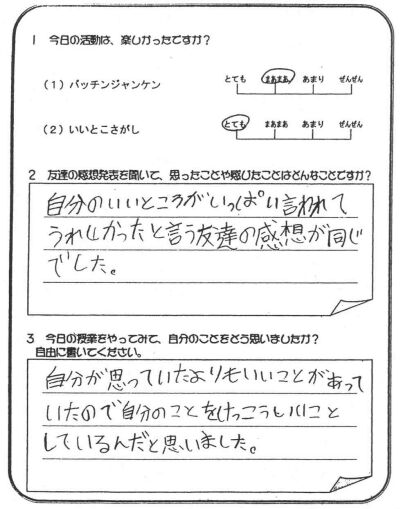 1 今日の活動は、楽しかったですか？
とても まあまあ あまり ぜんぜん
(1) バッチンジャンケン
とても まあまあ あまり ぜんぜん
(2) いいとこさがし
2 友達の感想発表を聞いて、思ったことや感じたことはどんなことですか？
自分のいいところがいっぱい言われて
うれしかったと言う友達の感想が同じ
でした。
3 今日の授業をやってみて、自分のことをどう思いましたか？
自由に書いてください。
自分が思っていたよりもいいことがあって
いたので自分のことをけっこういいこと
しているんだと思いました。